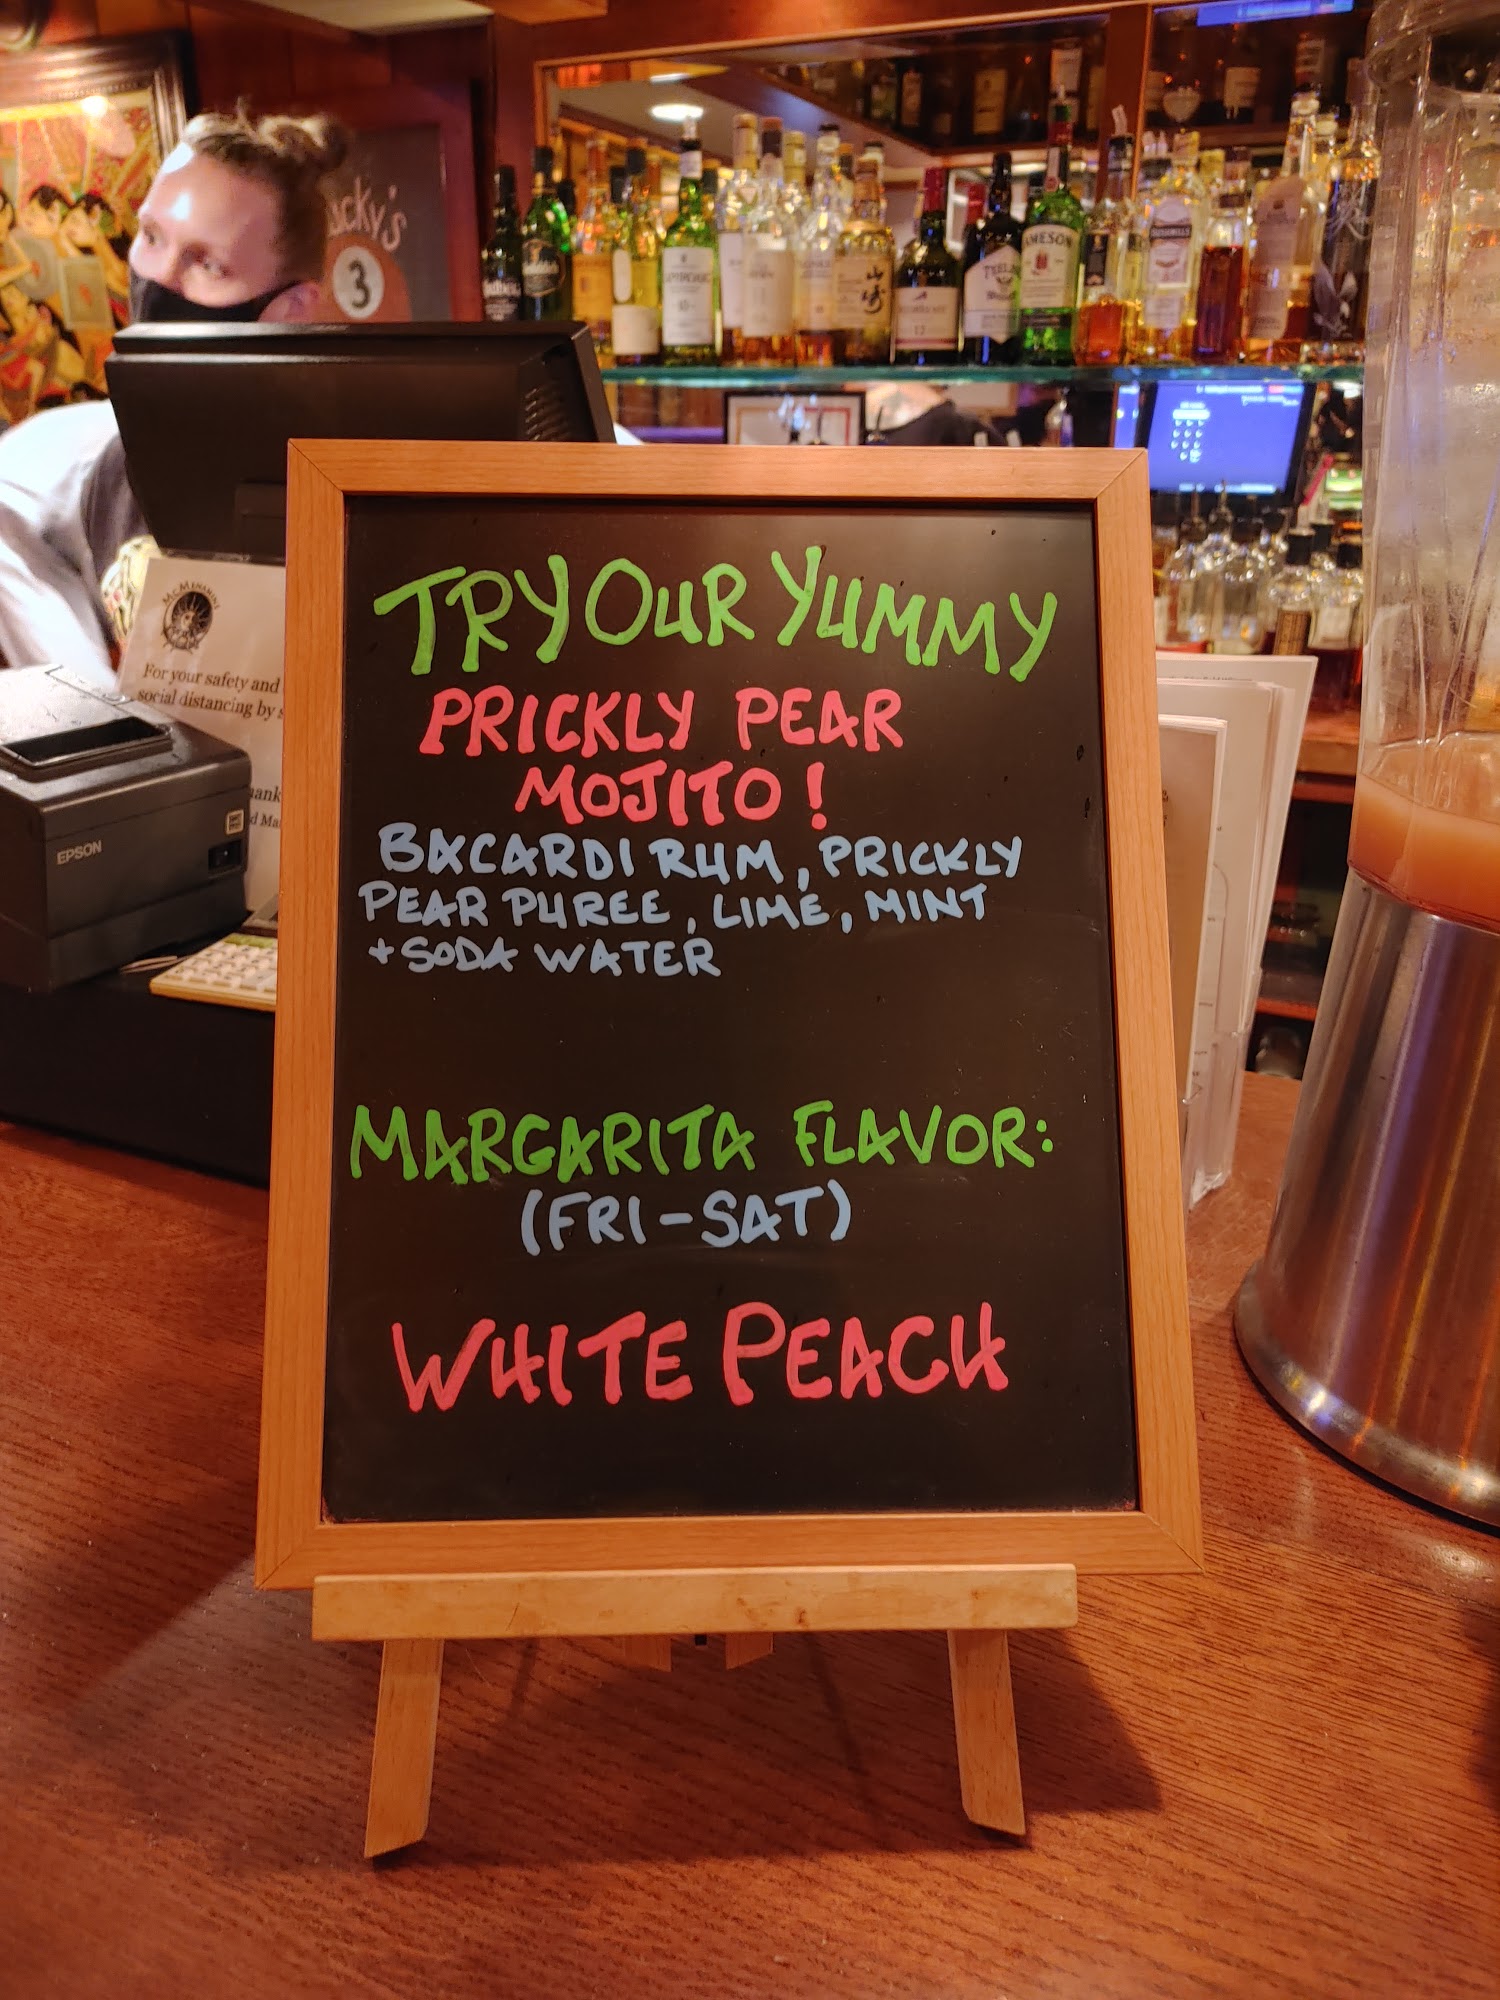 TRY OUR YUMMY
PRICKLY PEAR
MOJITO!
BACARDI RUM, PRICKLY
PEAR PUREE, LIME, MINT
+ SODA WATER
MARGARITA FLAVOR:
(FRI-SAT)
WHITE PEACH
3
JAMESON
BUSHMILLS
12
10
山崎
For your safety and
social distancing by
EPSON